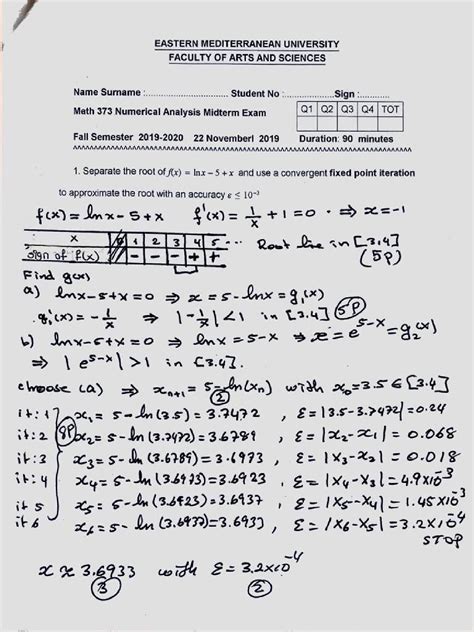 EASTERN MEDITERRANEAN UNIVERSITY
FACULTY OF ARTS AND SCIENCES
Name Surname :........................ Student No :.................... Sign :................
Meth 373 Numerical Analysis Midterm Exam
Q1 Q2 Q3 Q4 TOT
Fall Semester 2019-2020 22 Novemberl 2019 Duration: 90 minutes
1. Separate the root of f(x) = lnx − 5 + x and use a convergent fixed point iteration
to approximate the root with an accuracy ε ≤ 10⁻³
f(x) = lnx − 5 + x f'(x) = 1/x + 1 = 0 ⇒ x = −1
x 0 1 2 3 4 5 ...
sign of f(x) − − − + +
Root lie in [3,4]
(5P)
Find g(x)
a) lnx − 5 + x = 0 ⇒ x = 5 − lnx = g₁(x)
g₁'(x) = − 1/x ⇒ |− 1/x| < 1 in [3.4] 5P
b) lnx − 5 + x = 0 ⇒ lnx = 5 − x ⇒ x = e^(5−x) = g₂(x)
⇒ |e^(5−x)| > 1 in [3.4].
choose (a) ⇒ xₙ₊₁ = 5 − ln(xₙ) with x₀ = 3.5 ∈ [3.4]
②
it: 1 x₁ = 5 − ln(3.5) = 3.7472 , ε = |3.5 − 3.7472| = 0.24
it: 2 8P x₂ = 5 − ln(3.7472) = 3.6789 , ε = |x₂ − x₁| = 0.068
it: 3 x₃ = 5 − ln(3.6789) = 3.6973 , ε = |x₃ − x₂| = 0.018
it: 4 x₄ = 5 − ln(3.6973) = 3.6923 , ε = |x₄ − x₃| = 4.9×10⁻³
it 5 x₅ = 5 − ln(3.6923) = 3.6937 , ε = |x₅ − x₄| = 1.45×10⁻³
it 6 x₆ = 5 − ln(3.6937) = 3.6933 , ε = |x₆ − x₅| = 3.2×10⁻⁴
STOP
x ≈ 3.6933 with ε = 3.2×10⁻⁴
③ ②